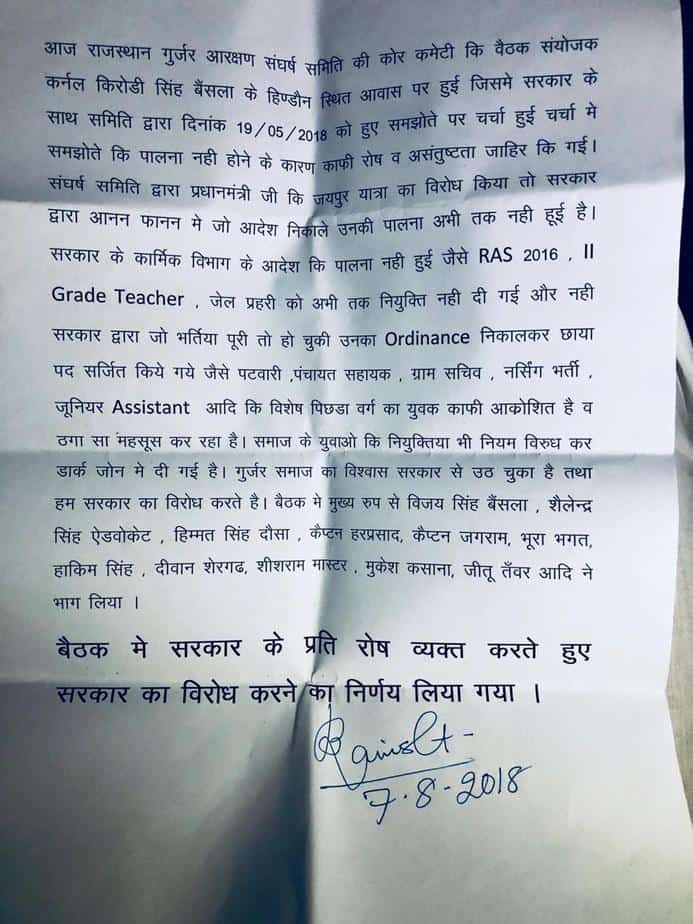 आज राजस्थान गुर्जर आरक्षण संघर्ष समिति की कोर कमेटी कि वैठक संयोजक
कर्नल किरोडी सिंह बैंसला के हिण्डौन स्थित आवास पर हुई जिसमे सरकार के
साथ समिति द्वारा दिनांक 19/05/2018 को हुए समझोते पर चर्चा हुई चर्चा मे
समझोते कि पालना नही होने के कारण काफी रोष व असंतुष्टता जाहिर कि गई।
संघर्ष समिति द्वारा प्रधानमंत्री जी कि जयपुर यात्रा का विरोध किया तो सरकार
द्वारा आनन फानन मे जो आदेश निकाले उनकी पालना अभी तक नही हूई है।
सरकार के कार्मिक विभाग के आदेश कि पालना नही हुई जैसे RAS 2016 , II
Grade Teacher , जेल प्रहरी को अभी तक नियुक्ति नही दी गई और नही
सरकार द्वारा जो भर्तिया पूरी तो हो चुकी उनका Ordinance निकालकर छाया
पद सर्जित किये गये जैसे पटवारी ,पंचायत सहायक , ग्राम सचिव , नर्सिंग भर्ती ,
जूनियर Assistant आदि कि विशेष पिछडा वर्ग का युवक काफी आकोशित है व
ठगा सा महसूस कर रहा है। समाज के युवाओ कि नियुक्तिया भी नियम विरुध कर
डार्क जोन मे दी गई है। गुर्जर समाज का विश्वास सरकार से उठ चुका है तथा
हम सरकार का विरोध करते है। बैठक मे मुख्य रुप से विजय सिंह बैंसला , शैलेन्द्र
सिंह ऐडवोकेट , हिम्मत सिंह दौसा , कैप्टन हरप्रसाद, कैप्टन जगराम, भूरा भगत,
हाकिम सिंह , दीवान शेरगढ, शीशराम मास्टर , मुकेश कसाना, जीतू तँवर आदि ने
भाग लिया ।
बैठक मे सरकार के प्रति रोष व्यक्त करते हुए
सरकार का विरोध करने का निर्णय लिया गया ।
7.8-2018